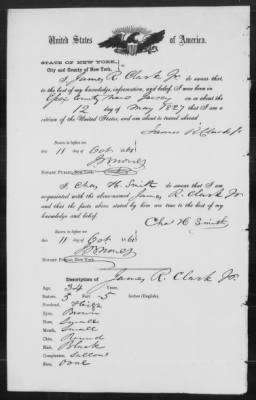 United States of America.
STATE OF NEW YORK,
City and County of New York,
I, James R. Clark Jr. do swear that
to the best of my knowledge, information, and belief, I was born in
Essex County New Jersey on or about the
12 day of May 1827 that I am a
citizen of the United States, and am about to travel abroad
James R Clark Jr
Sworn to before me
this 11 day of Oct 1861
NOTARY PUBLIC, New York.
I, Chas H. Smith do swear that I am
acquainted with the above-named James R. Clark Jr.
and that the facts above stated by him are true to the best of my
knowledge and belief.
Chas H Smith
Sworn to before me
this 11 day of Oct 1861
NOTARY PUBLIC, New York.
Description of James R. Clark Jr.
Age, 34 Years.
Stature, 5 Feet 5 Inches (English).
Forehead, High
Eyes, Brown
Nose, Small
Mouth, Small
Chin, Round
Hair, Black
Complexion, Sallow
Face, Oval